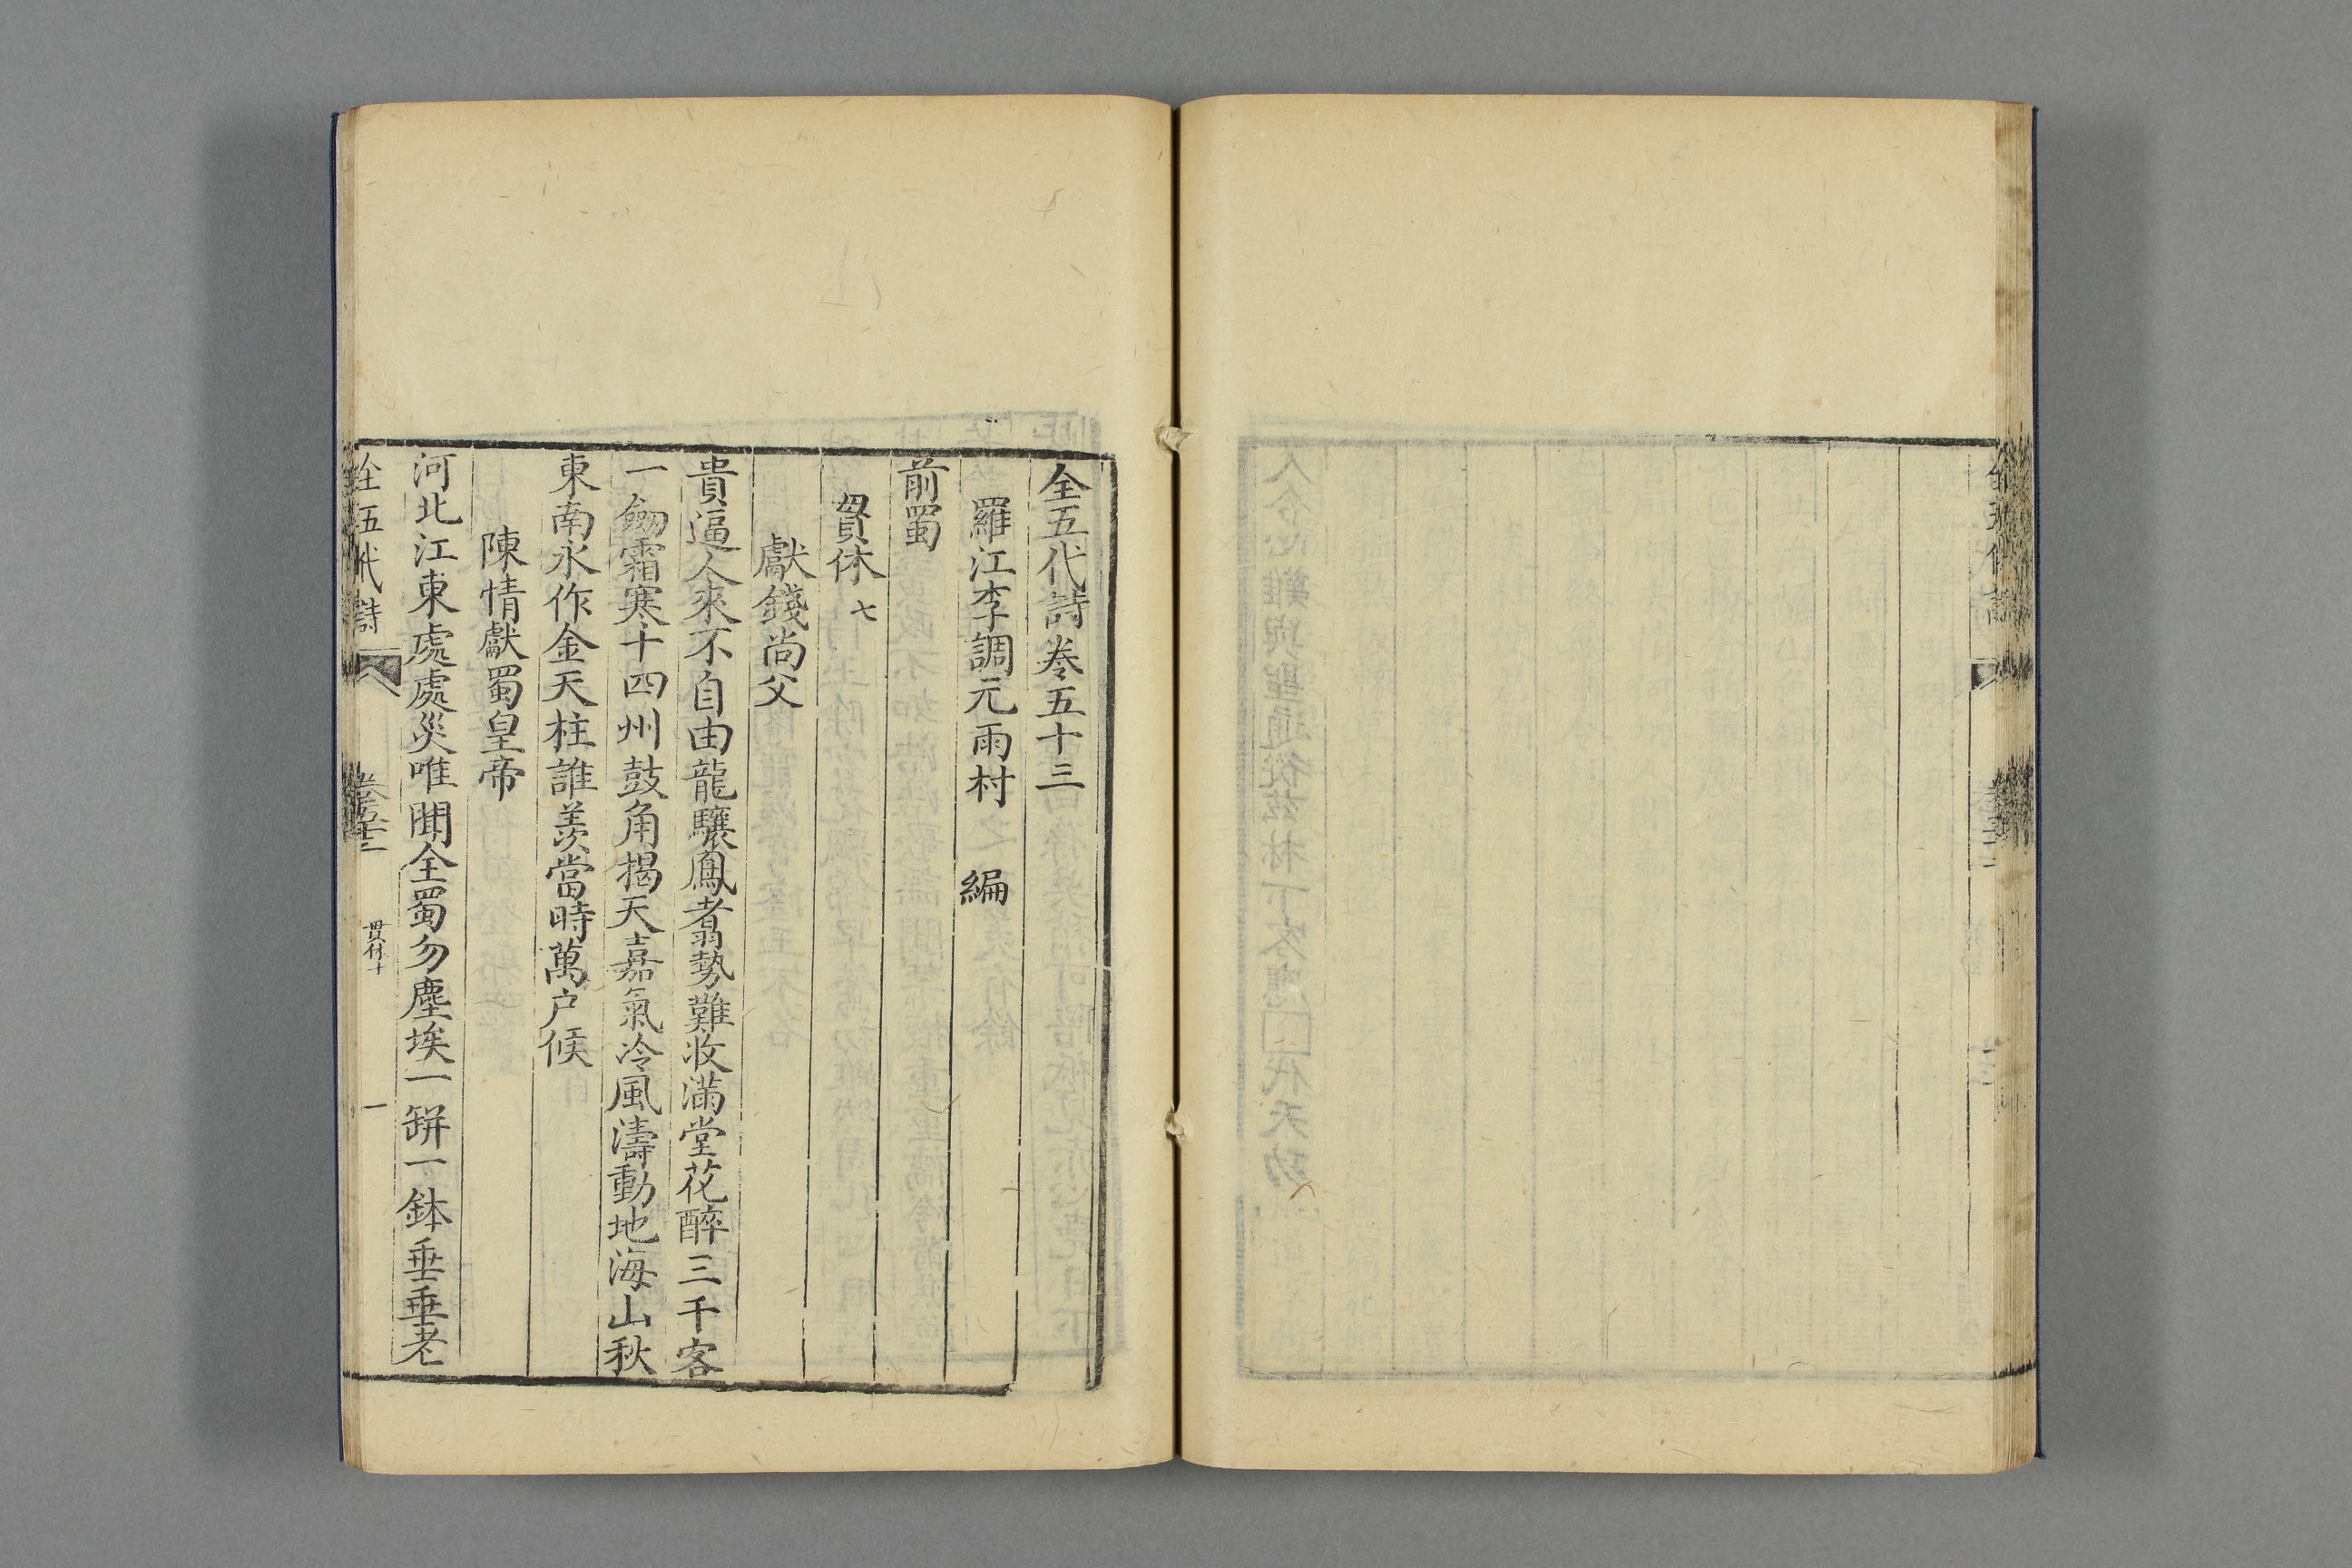 全五代詩卷五十三
羅江李調元雨村 編
前蜀
貫休 七
獻錢尚父
貴逼人來不自由龍驤鳳翥勢難收滿堂花醉三千客
一劒霜寒十四州鼓角揭天嘉氣冷風濤動地海山秋
東南永作金天柱誰羨當時萬户候
陳情獻蜀皇帝
河北江東處處災唯聞全蜀勿塵埃一缾一鉢垂垂老
全五代詩
卷五十三
貫休
一